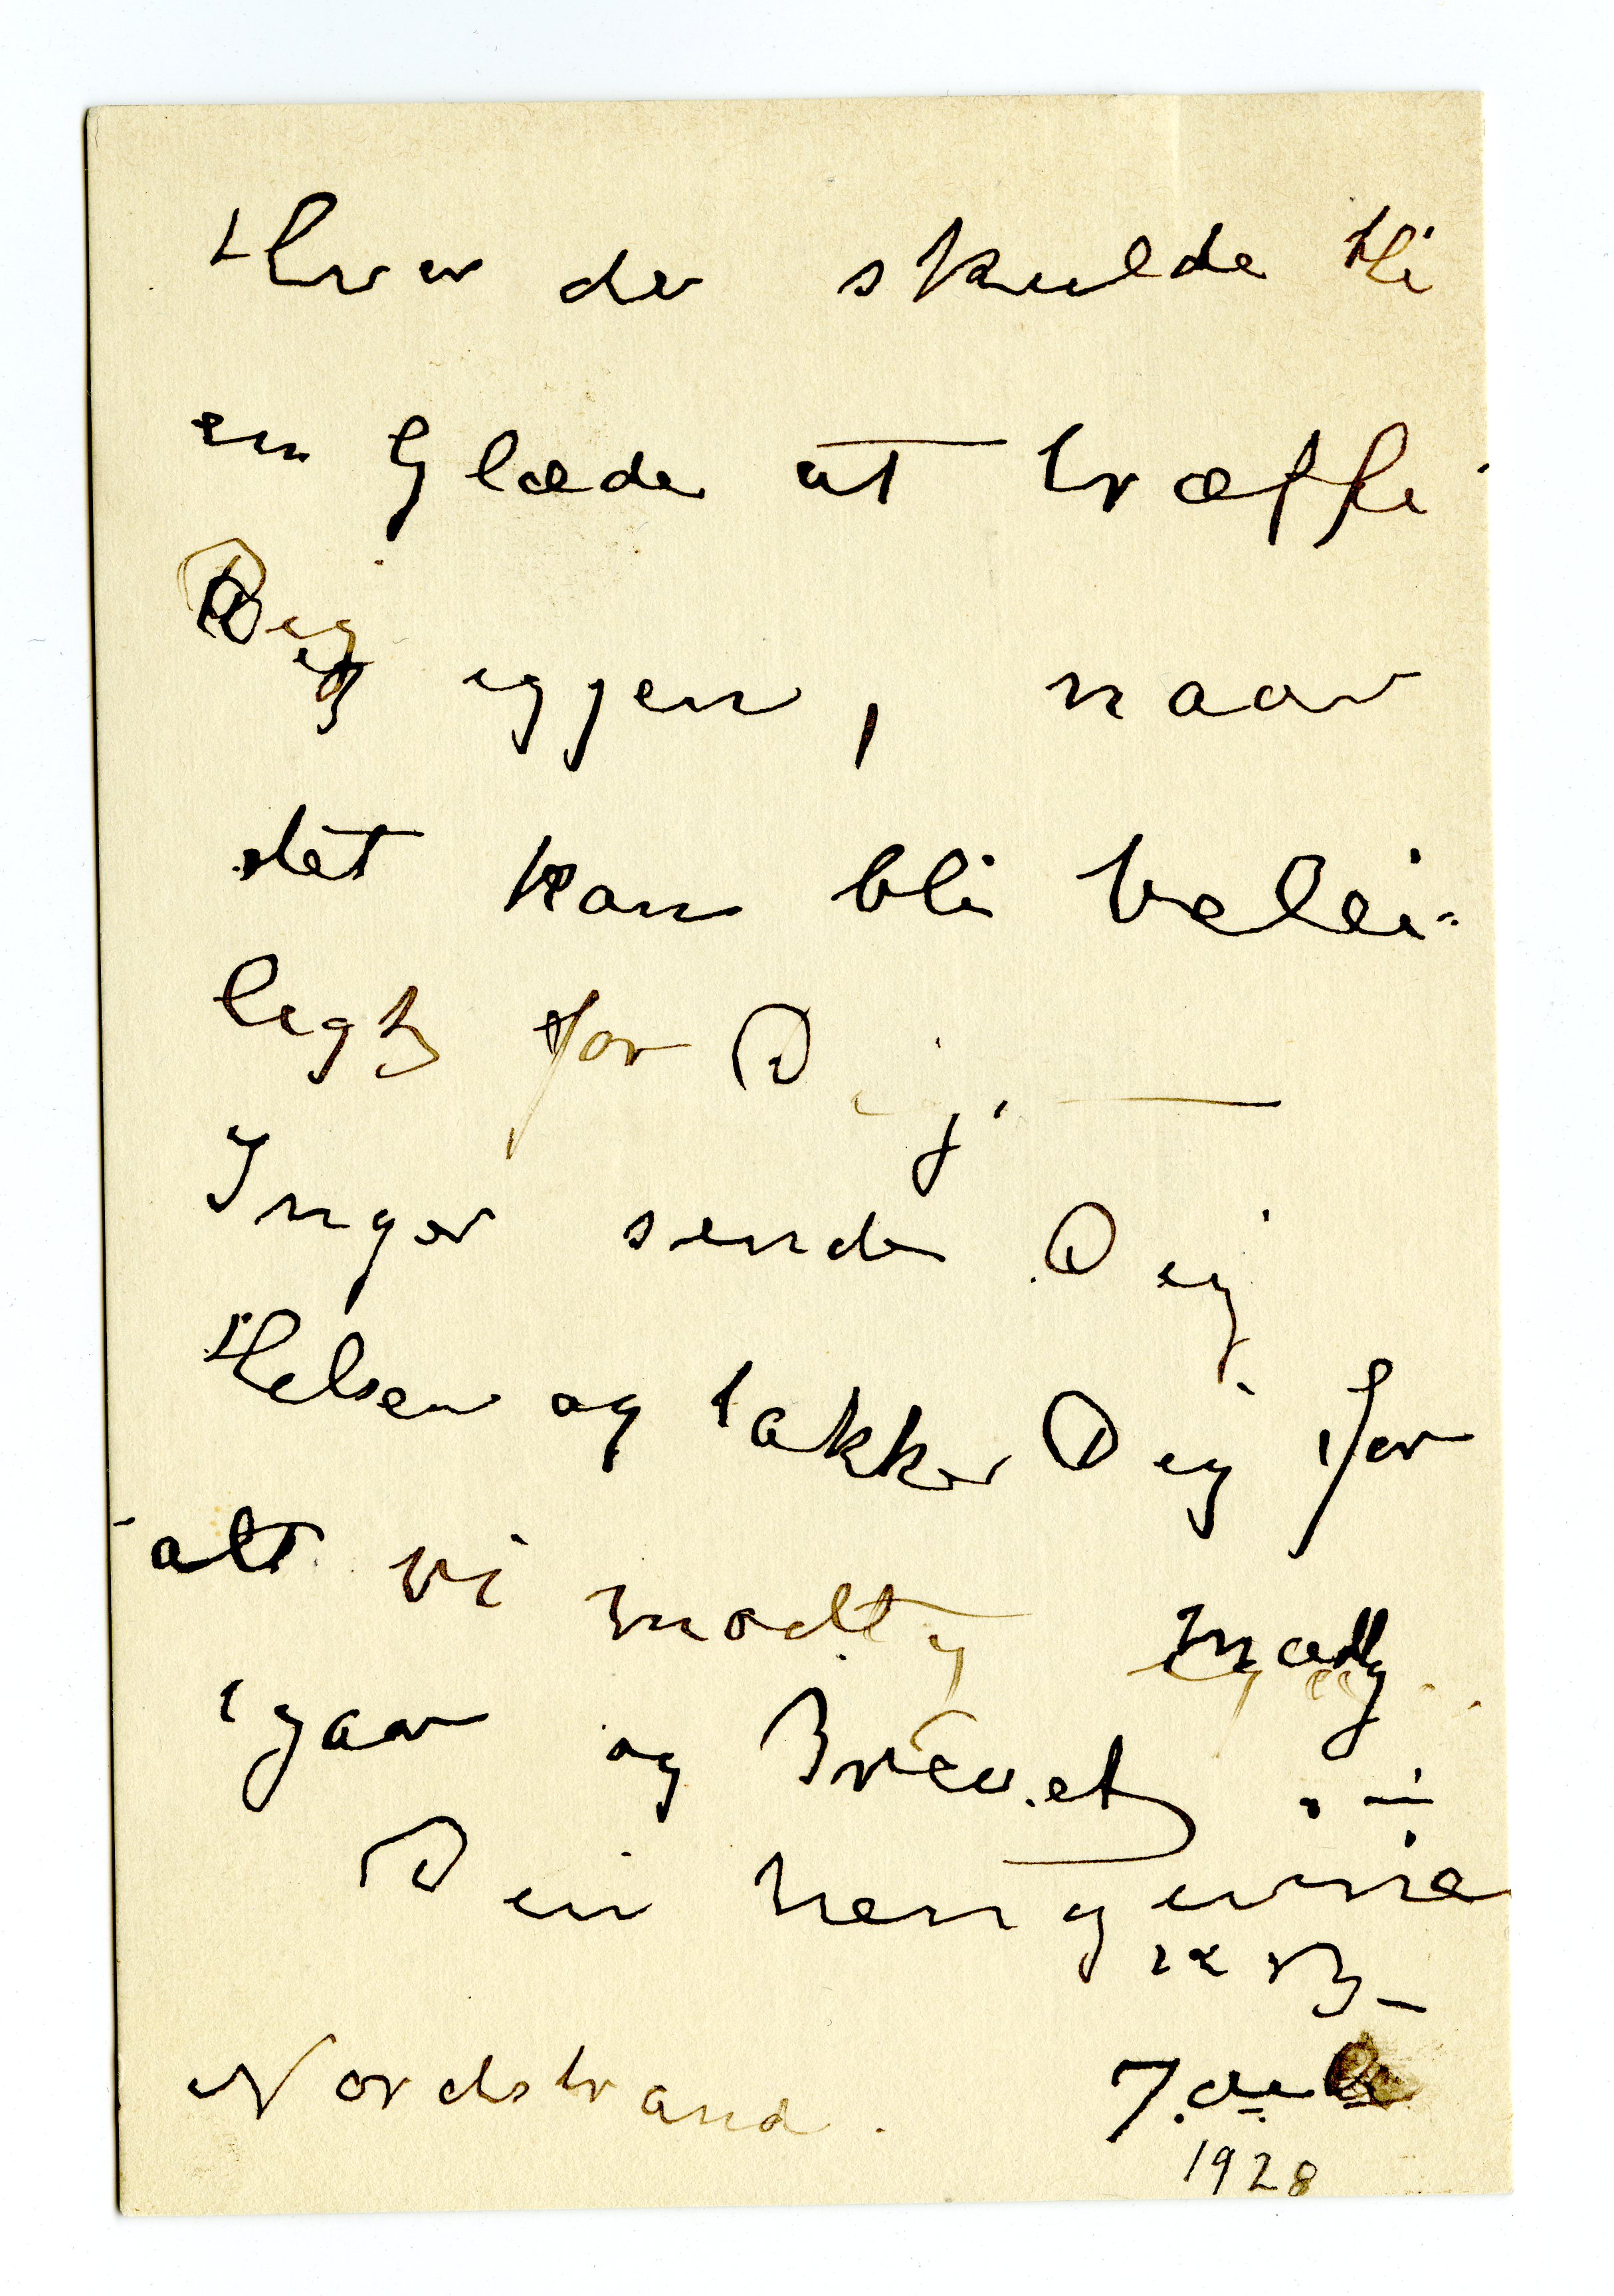 Hvor der skulde bli
en Glæde at træffe
Dig
igjen, naar
det kan bli belei-
ligt for Dig. —
Inger sender Dig
Helsen og takker Dig for
alt vi modtog
igaar og Brevet. —
Din hengivne
Nordstrand. 7. juli
1928